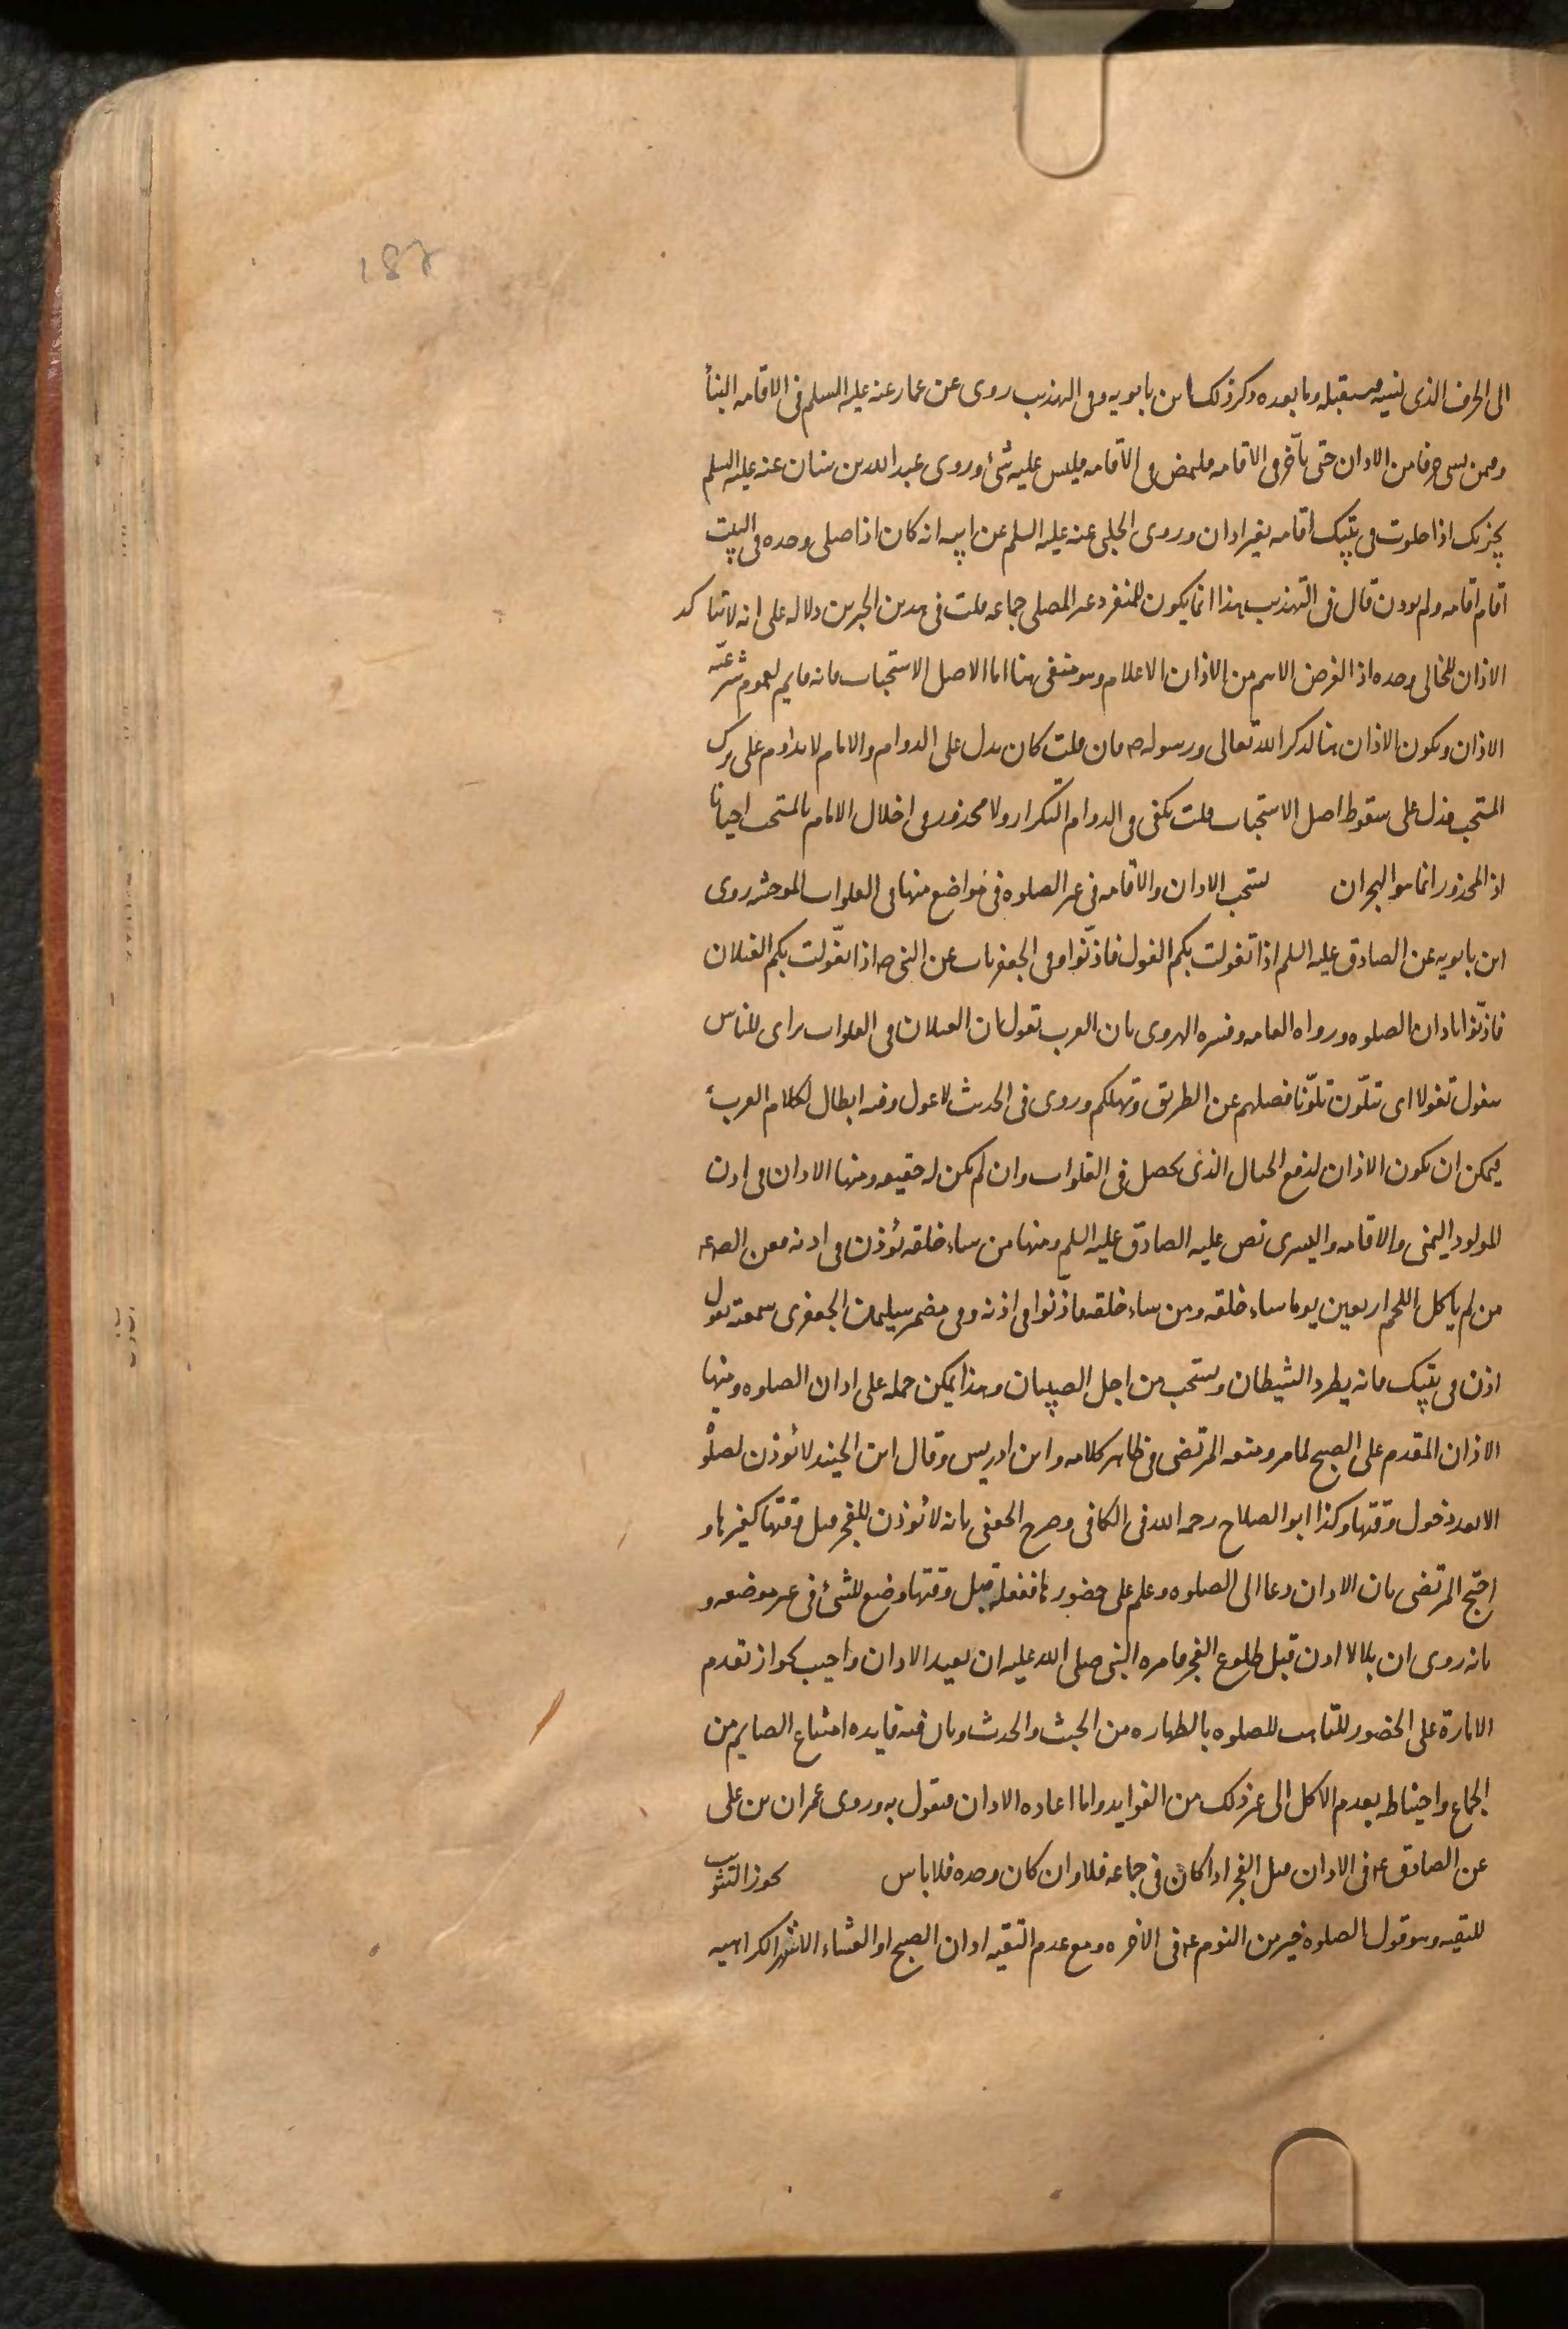 187
الى الحرف الذى نسيه مستقبله وما بعده وذكر ذلك ابن بابويه وفى التهذيب روى عن عمار عنه عليه السلم فى الاقامه ايضا
وممن نسى حرفا من الاذان حتى ياخذ فى الاقامه فليمض فى الاقامه فليس عليه شئ وروى عبد الله بن سنان عنه عليه السلم
يجزيك اذا خلوت فى بيتك اقامه بغير اذان وروى الحلبى عنه عليه السلم عن ابيه انه كان اذا صلى وحده فى البيت
اقام اقامه ولم يوذن قال فى التهذيب هذا انما يكون للمنفرد غير المصلى جماعه قلت فى هذين الخبرين دلاله على انه لا يتاكد
الاذان للخالى وحده اذ الغرض الاهم من الاذان الاعلام وهو منتفى هنا اما الاصل الاستحباب فانه قايم لعموم شرعيه
الاذان ويكون الاذان هنا لذكر الله تعالى ورسوله ص فان قلت كان يدل على الدوام والامام لا يداوم على ترك
المستحب فدل على سقوط اصل الاستحباب قلت يكفى فى الدوام التكرار ولا محذور فى اخلال الامام بالمستحب احيانا
اذ المحذور انما هو الهجران يستحب الاذان والاقامه فى غير الصلوه فى مواضع منها فى الفلوات الموحشه روى
ابن بابويه عن الصادق عليه السلم اذا تغولت بكم الغول فاذنوا وفى الجعفريات عن النبى ص اذا تغولت بكم الغيلان
فاذنوا باذان الصلوه ورواه العامه وفسره الهروى بان العرب تقول ان الغيلان فى الفلوات تراى للناس
تتغول تغولا اى تتلون تلونا فتضلهم عن الطريق وتهلكهم وروى فى الحديث لا غول وفيه ابطال لكلام العرب
فيمكن ان يكون الاذان لدفع الخيال الذى يحصل فى الفلوات وان لم يكن له حقيقه ومنها الاذان فى اذن
المولود اليمنى والاقامه فى اليسرى نص عليه الصادق عليه السلم ومنها من ساء خلقه يؤذن فى اذنه فعن الصادق
من لم ياكل اللحم اربعين يوما ساء خلقه ومن ساء خلقه فاذنوا فى اذنه وفى مضمر سليمان الجعفرى سمعته يقول
اذن فى بيتك فانه يطرد الشيطان ويستحب من اجل الصبيان وهذا يمكن حمله على اذان الصلوه ومنها
الاذان المقدم على الصبح لما مر ومنعه المرتضى فى ظاهر كلامه وابن ادريس وقال ابن الجنيد لا يؤذن لصلوه
الا بعد دخول وقتها وكذا ابو الصلاح رحمه الله فى الكافى وصرح الجعفى بانه لا يؤذن للفجر قبل وقتها كغيرها و
احتج المرتضى بان الاذان دعا الى الصلوه وعلم على حضورها ففعله قبل وقتها وضع للشئ فى غير موضعه و
بانه روى ان بلالا اذن قبل طلوع الفجر فامره النبى صلى الله عليه ان يعيد الاذان واجيب بجواز تقدم
الامارة على الحضور للتاهب للصلوه بالطهاره من الخبث والحدث وبان فيه فايده امتناع الصايم من
الجماع واحتياطه بعدم الاكل الى غير ذلك من الفوايد واما اعاده الاذان فنقول به وروى عمران بن على
عن الصادق ع فى الاذان قبل الفجر اذا كان فى جماعه فلا وان كان وحده فلا باس يجوز التثويب
للتقيه وهو قول الصلوه خير من النوم فى الاخره ومع عدم التقيه اذان الصبح او العشاء الاشهر الكراهيه